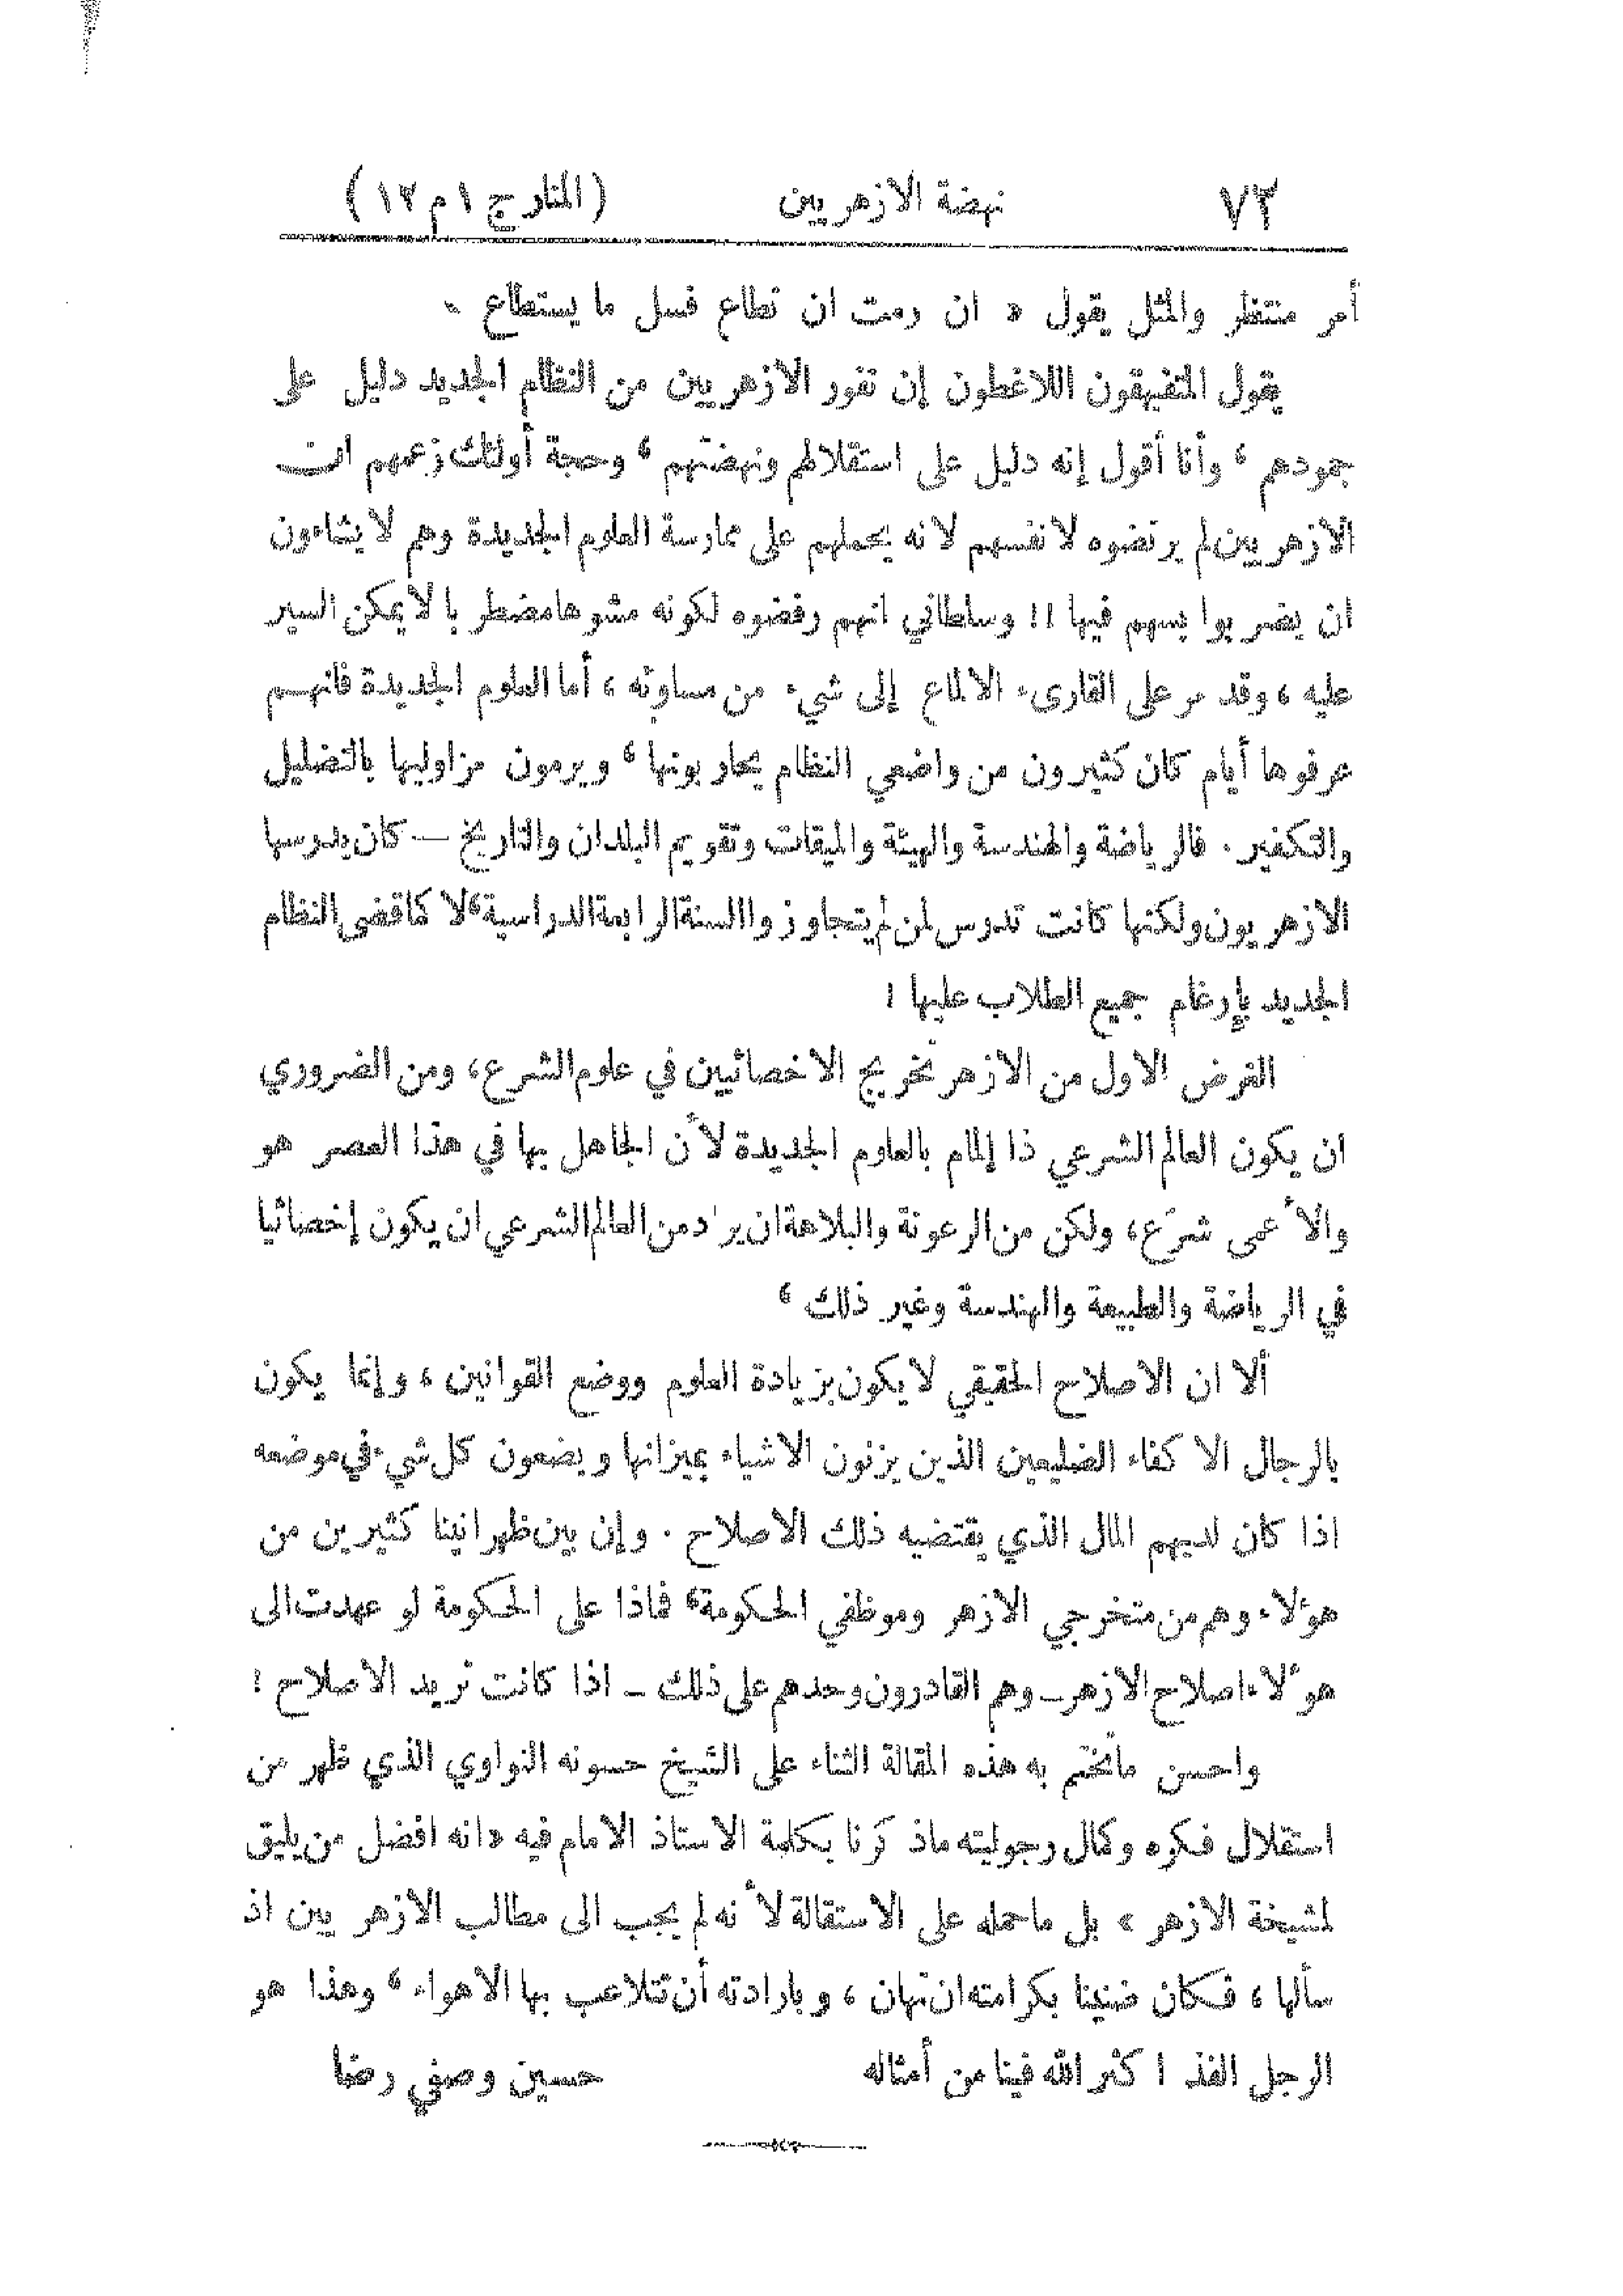 ٧٢ نهضة الازهريين (المنار ج ١ م ١٢)
أمر منتظر والمثل يقول « ان رمت ان تطاع فسل ما يستطاع »
يقول المتفيهقون اللاغطون إن نفور الازهريين من النظام الجديد دليل على
جمودهم ، وأنا أقول إنه دليل على استقلالهم ونهضتهم ، وحجة أولئك زعمهم ان
الازهريين لم يرتضوه لانفسهم لانه يحملهم على ممارسة العلوم الجديدة وهم لا يشاءون
ان يضربوا بسهم فيها !! وسلطاني انهم رفضوه لكونه مشوها مضطربا لا يمكن السير
عليه ، وقد مر على القارىء الالماع إلى شيء من مساوئه ، أما العلوم الجديدة فانهم
عرفوها أيام كان كثيرون من واضعي النظام يحاربونها ، ويرمون مزاوليها بالتضليل
والتكفير . فالرياضة والهندسة والهيئة والميقات وتقويم البلدان والتاريخ — كان يدرسها
الازهريون ولكنها كانت تدرس لمن لم يتجاوزوا السنة الرابعة الدراسية ، لا كما قضى النظام
الجديد بإرغام جميع الطلاب عليها !
الغرض الاول من الازهر تخريج الاخصائيين في علوم الشرع ، ومن الضروري
ان يكون العالم الشرعي ذا إلمام بالعلوم الجديدة لأن الجاهل بها في هذا العصر هو
والأعمى شرَع ، ولكن من الرعونة والبلاهة ان يراد من العالم الشرعي ان يكون إخصائيا
في الرياضة والطبيعة والهندسة وغير ذلك ،
ألا ان الاصلاح الحقيقي لا يكون بزيادة العلوم ووضع القوانين ، وإنما يكون
بالرجال الاكفاء الضليعين الذين يزنون الاشياء بميزانها ويضعون كل شيء في موضعه
اذا كان لديهم المال الذي يقتضيه ذلك الاصلاح . وإن بين ظهرانينا كثيرين من
هؤلاء وهم من متخرجي الازهر وموظفي الحكومة ، فماذا على الحكومة لو عهدت الى
هؤلاء اصلاح الازهر — وهم القادرون وحدهم على ذلك — اذا كانت تريد الاصلاح !
واحسن ما نختم به هذه المقالة الثناء على الشيخ حسونه النواوي الذي ظهر من
استقلال فكره وكمال رجوليته ما ذكرنا بكلمة الاستاذ الامام فيه « انه افضل من يليق
لمشيخة الازهر » بل ما حمله على الاستقالة لأنه لم يجب الى مطالب الازهريين اذ
سألها ، فكان ضنينا بكرامته ان تهان ، وبارادته أن تتلاعب بها الاهواء ، وهذا هو
الرجل الفذ ! كثر الله فينا من أمثاله حسين وصفي رضا